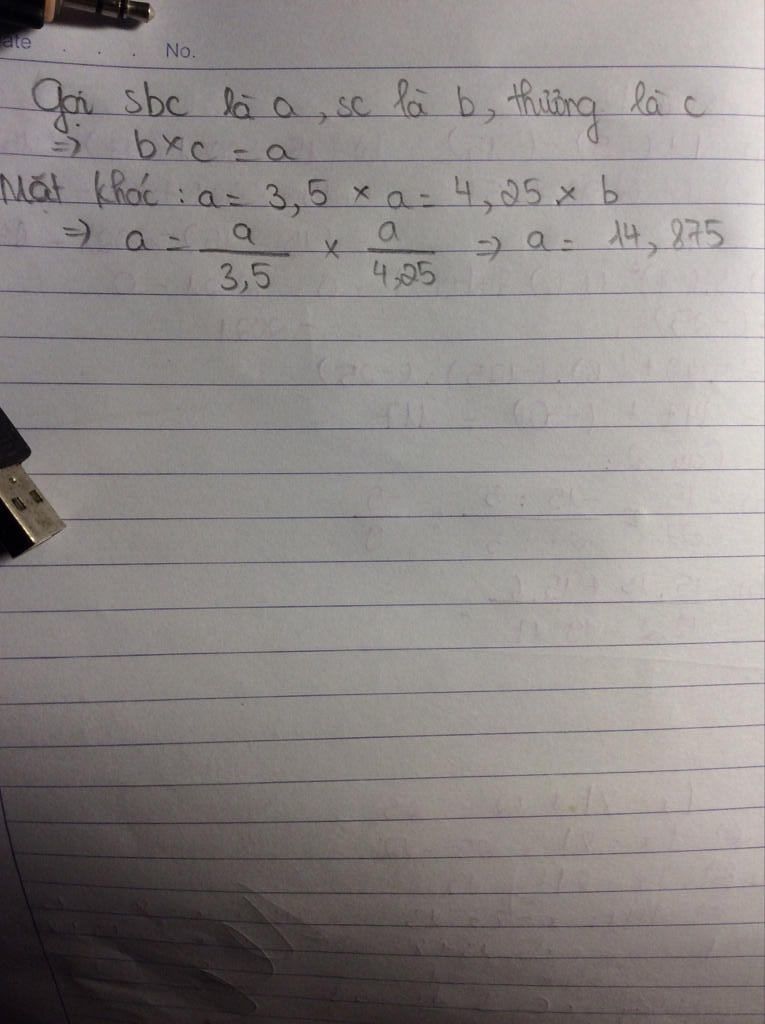 ate . . . . No.
Gọi sbc là a, sc là b, thương là c
=> b×c = a
Mặt khác : a = 3,5 × a = 4,25 × b
=> a = a/3,5 × a/4,25 => a = 14,875